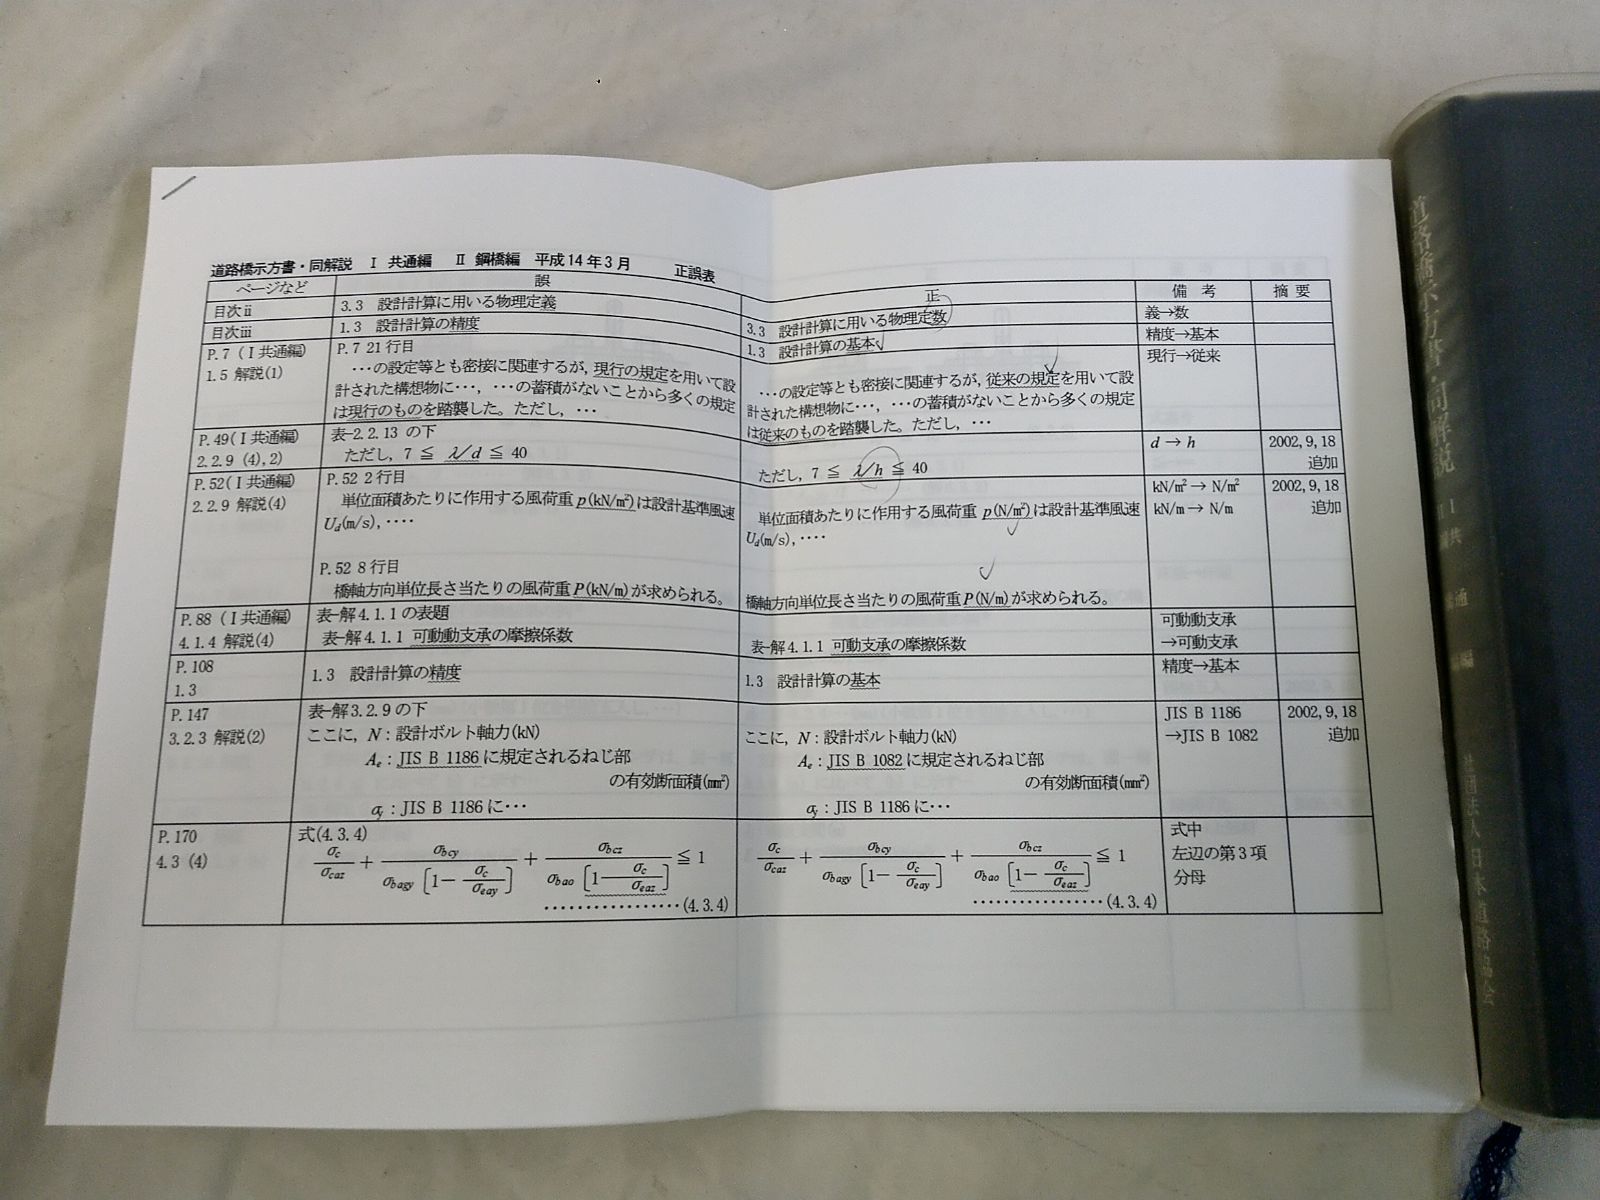 道路橋示方書・同解説 Ⅰ 共通編 Ⅱ 鋼橋編 平成14年3月 正誤表
ページなど 誤 正 備考 摘要
目次ⅱ 3.3 設計計算に用いる物理定義 3.3 設計計算に用いる物理定数 義→数
目次ⅲ 1.3 設計計算の精度 1.3 設計計算の基本 精度→基本
P.7 (Ⅰ共通編)
1.5 解説(1)
P.7 21行目
・・・の設定等とも密接に関連するが, 現行の規定を用いて設
計された構想物に・・・, ・・・の蓄積がないことから多くの規定
は現行のものを踏襲した。ただし, ・・・
・・・の設定等とも密接に関連するが, 従来の規定を用いて設
計された構想物に・・・, ・・・の蓄積がないことから多くの規定
は従来のものを踏襲した。ただし, ・・・
現行→従来
P.49(Ⅰ共通編)
2.2.9 (4),2)
表-2.2.13 の下
ただし, 7 ≦ λ/d ≦ 40
ただし, 7 ≦ λ/h ≦ 40
d → h
2002,9,18
追加
P.52(Ⅰ共通編)
2.2.9 解説(4)
P.52 2行目
単位面積あたりに作用する風荷重 p(kN/m²)は設計基準風速
Ud(m/s), ・・・・
P.52 8行目
橋軸方向単位長さ当たりの風荷重 P(kN/m)が求められる。
単位面積あたりに作用する風荷重 p(N/m²)は設計基準風速
Ud(m/s), ・・・・
橋軸方向単位長さ当たりの風荷重 P(N/m)が求められる。
kN/m² → N/m²
kN/m → N/m
2002,9,18
追加
P.88 (Ⅰ共通編)
4.1.4 解説(4)
表-解4.1.1 の表題
表-解4.1.1 可動動支承の摩擦係数
表-解4.1.1 可動支承の摩擦係数
可動動支承
→可動支承
P.108
1.3
1.3 設計計算の精度
1.3 設計計算の基本
精度→基本
P.147
3.2.3 解説(2)
表-解3.2.9 の下
ここに, N : 設計ボルト軸力(kN)
Ae : JIS B 1186 に規定されるねじ部
の有効断面積(mm²)
σy : JIS B 1186 に・・・
ここに, N : 設計ボルト軸力(kN)
Ae : JIS B 1082 に規定されるねじ部
の有効断面積(mm²)
σy : JIS B 1186 に・・・
JIS B 1186
→JIS B 1082
2002,9,18
追加
P.170
4.3 (4)
式(4.3.4)
σc/σcaz + σbcy/σbagy[1-σc/σeay] + σbcz/σbao[1-σc/σeaz] ≦ 1
・・・・・・・・・・・・・・・・・(4.3.4)
σc/σcaz + σbcy/σbagy[1-σc/σeay] + σbcz/σbao[1-σc/σeaz] ≦ 1
・・・・・・・・・・・・・・・・(4.3.4)
式中
左辺の第3項
分母
道路橋示方書・同解説
社団法人 日本道路協会